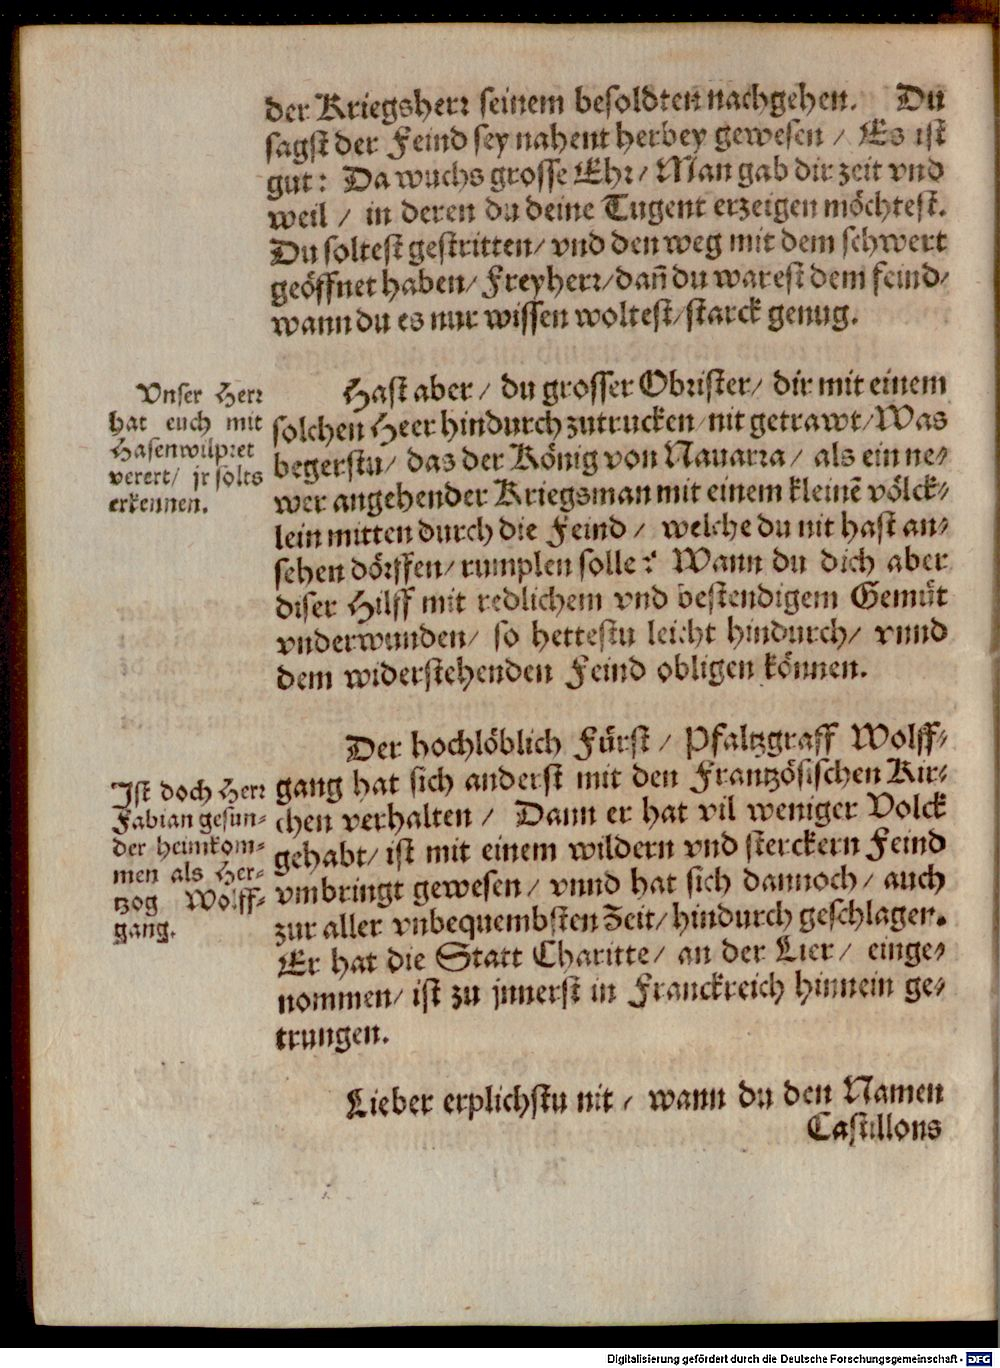 der Kriegsherr seinem besoldten nachgehen. Du
sagst der Feind sey nahent herbey gewesen / Es ist
gut: Da wuchs grosse Ehr / Man gab dir zeit vnd
weil / in deren du deine Tugent erzeigen möchtest.
Du soltest gestritten / vnd den weg mit dem schwert
geöffnet haben / Freyherr / dañ du warest dem feind /
wann du es nur wissen woltest / starck genug.
Vnser Herr
hat euch mit
Hasenwilpret
verert / jr solts
erkennen.
Hast aber / du grosser Obrister / dir mit einem
solchen Heer hindurch zutrucken nit getrawt / Was
begerstu / das der König von Nauarra / als ein ne⸗
wer angehender Kriegsman mit einem kleinē völck⸗
lein mitten durch die Feind / welche du nit hast an⸗
sehen dörffen / rumplen solle? Wann du dich aber
diser Hilff mit redlichem vnd bestendigem Gemüt
vnderwunden / so hettestu leicht hindurch / vnnd
dem widerstehenden Feind obligen können.
Ist doch Herr
Fabian gesun⸗
der heimkom⸗
men als Her⸗
tzog Wolff⸗
gang.
Der hochlöblich Fürst / Pfaltzgraff Wolff⸗
gang hat sich anderst mit den Frantzösischen Kir⸗
chen verhalten / Dann er hat vil weniger Volck
gehabt / ist mit einem wildern vnd sterckern Feind
vmbringt gewesen / vnnd hat sich dannoch / auch
zur aller vnbequembsten Zeit / hindurch geschlagen.
Er hat die Statt Charitte / an der Lier / einge⸗
nommen / ist zu jnnerst in Franckreich hinnein ge⸗
trungen.
Lieber erplichstu nit / wann du den Namen
Castillons
Digitalisierung gefördert durch die Deutsche Forschungsgemeinschaft - DFG